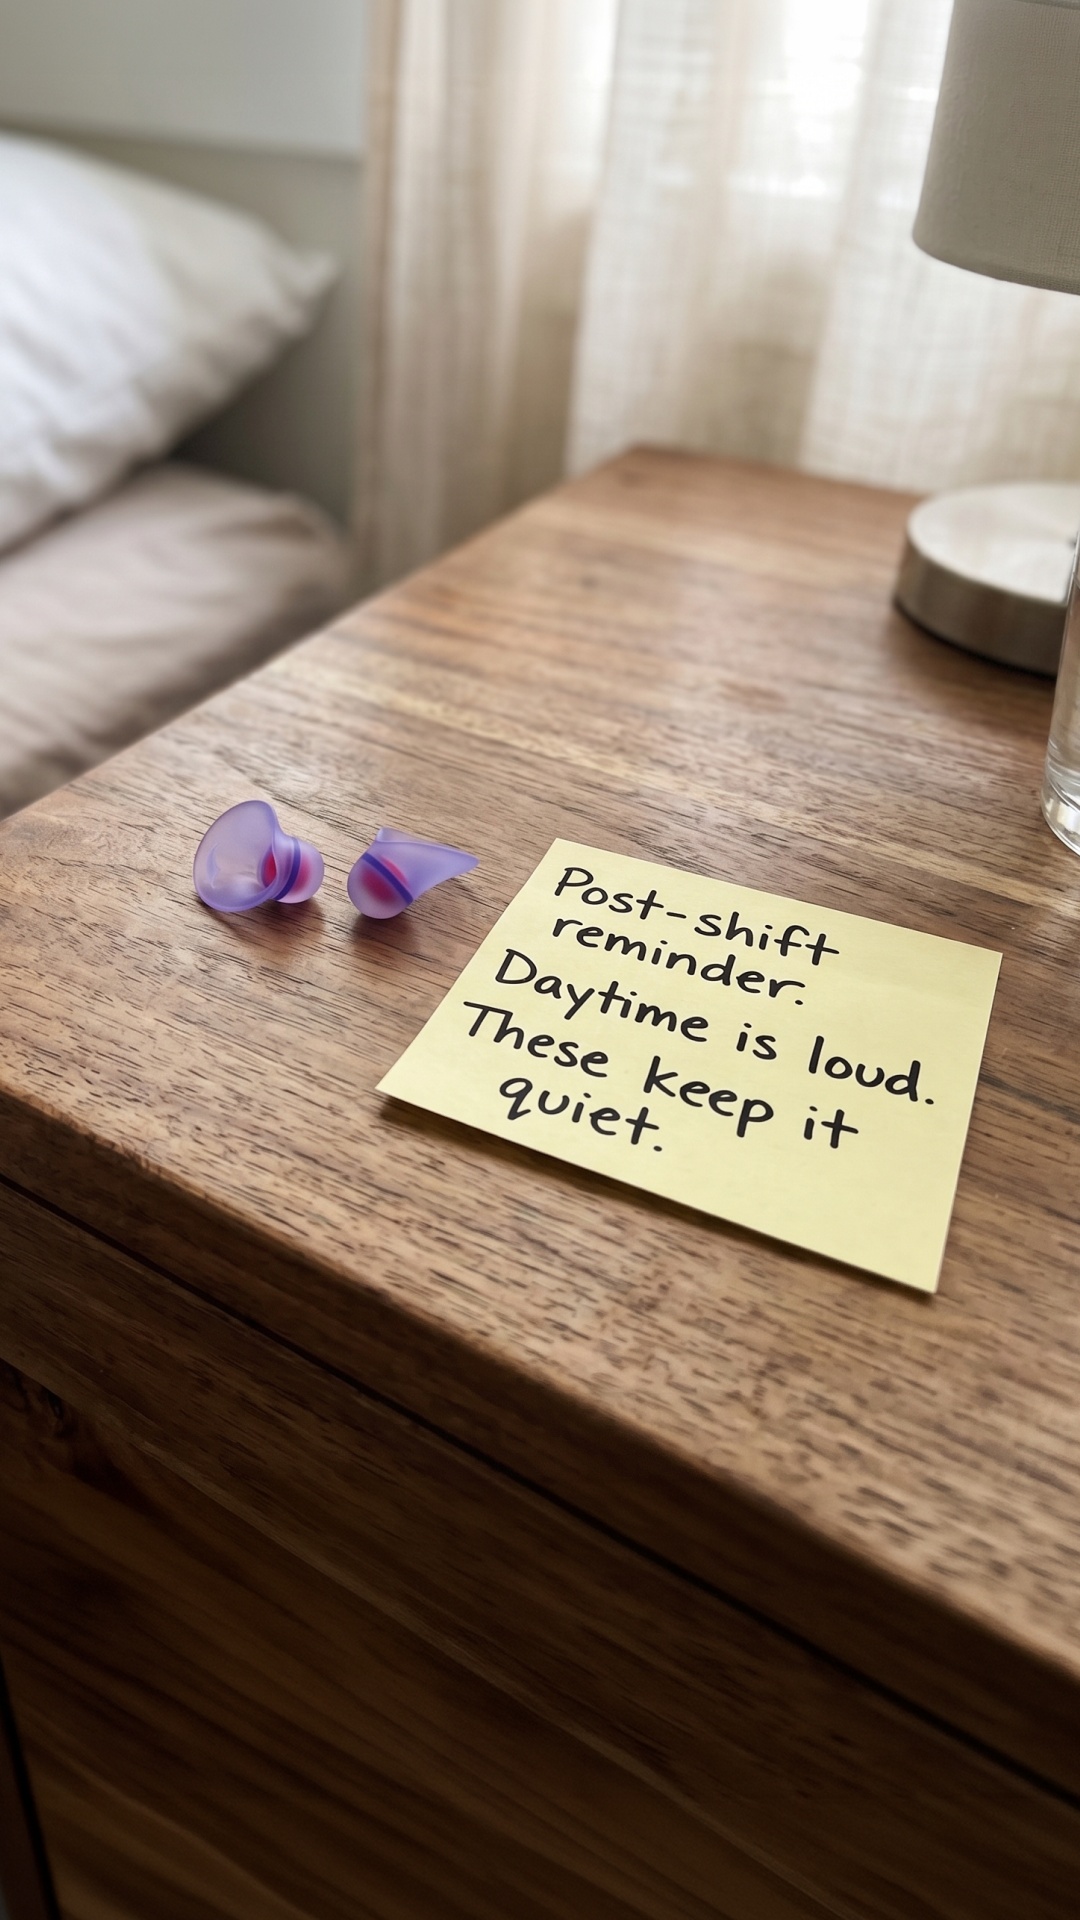 Post-shift
reminder.
Daytime is loud.
These keep it
quiet.